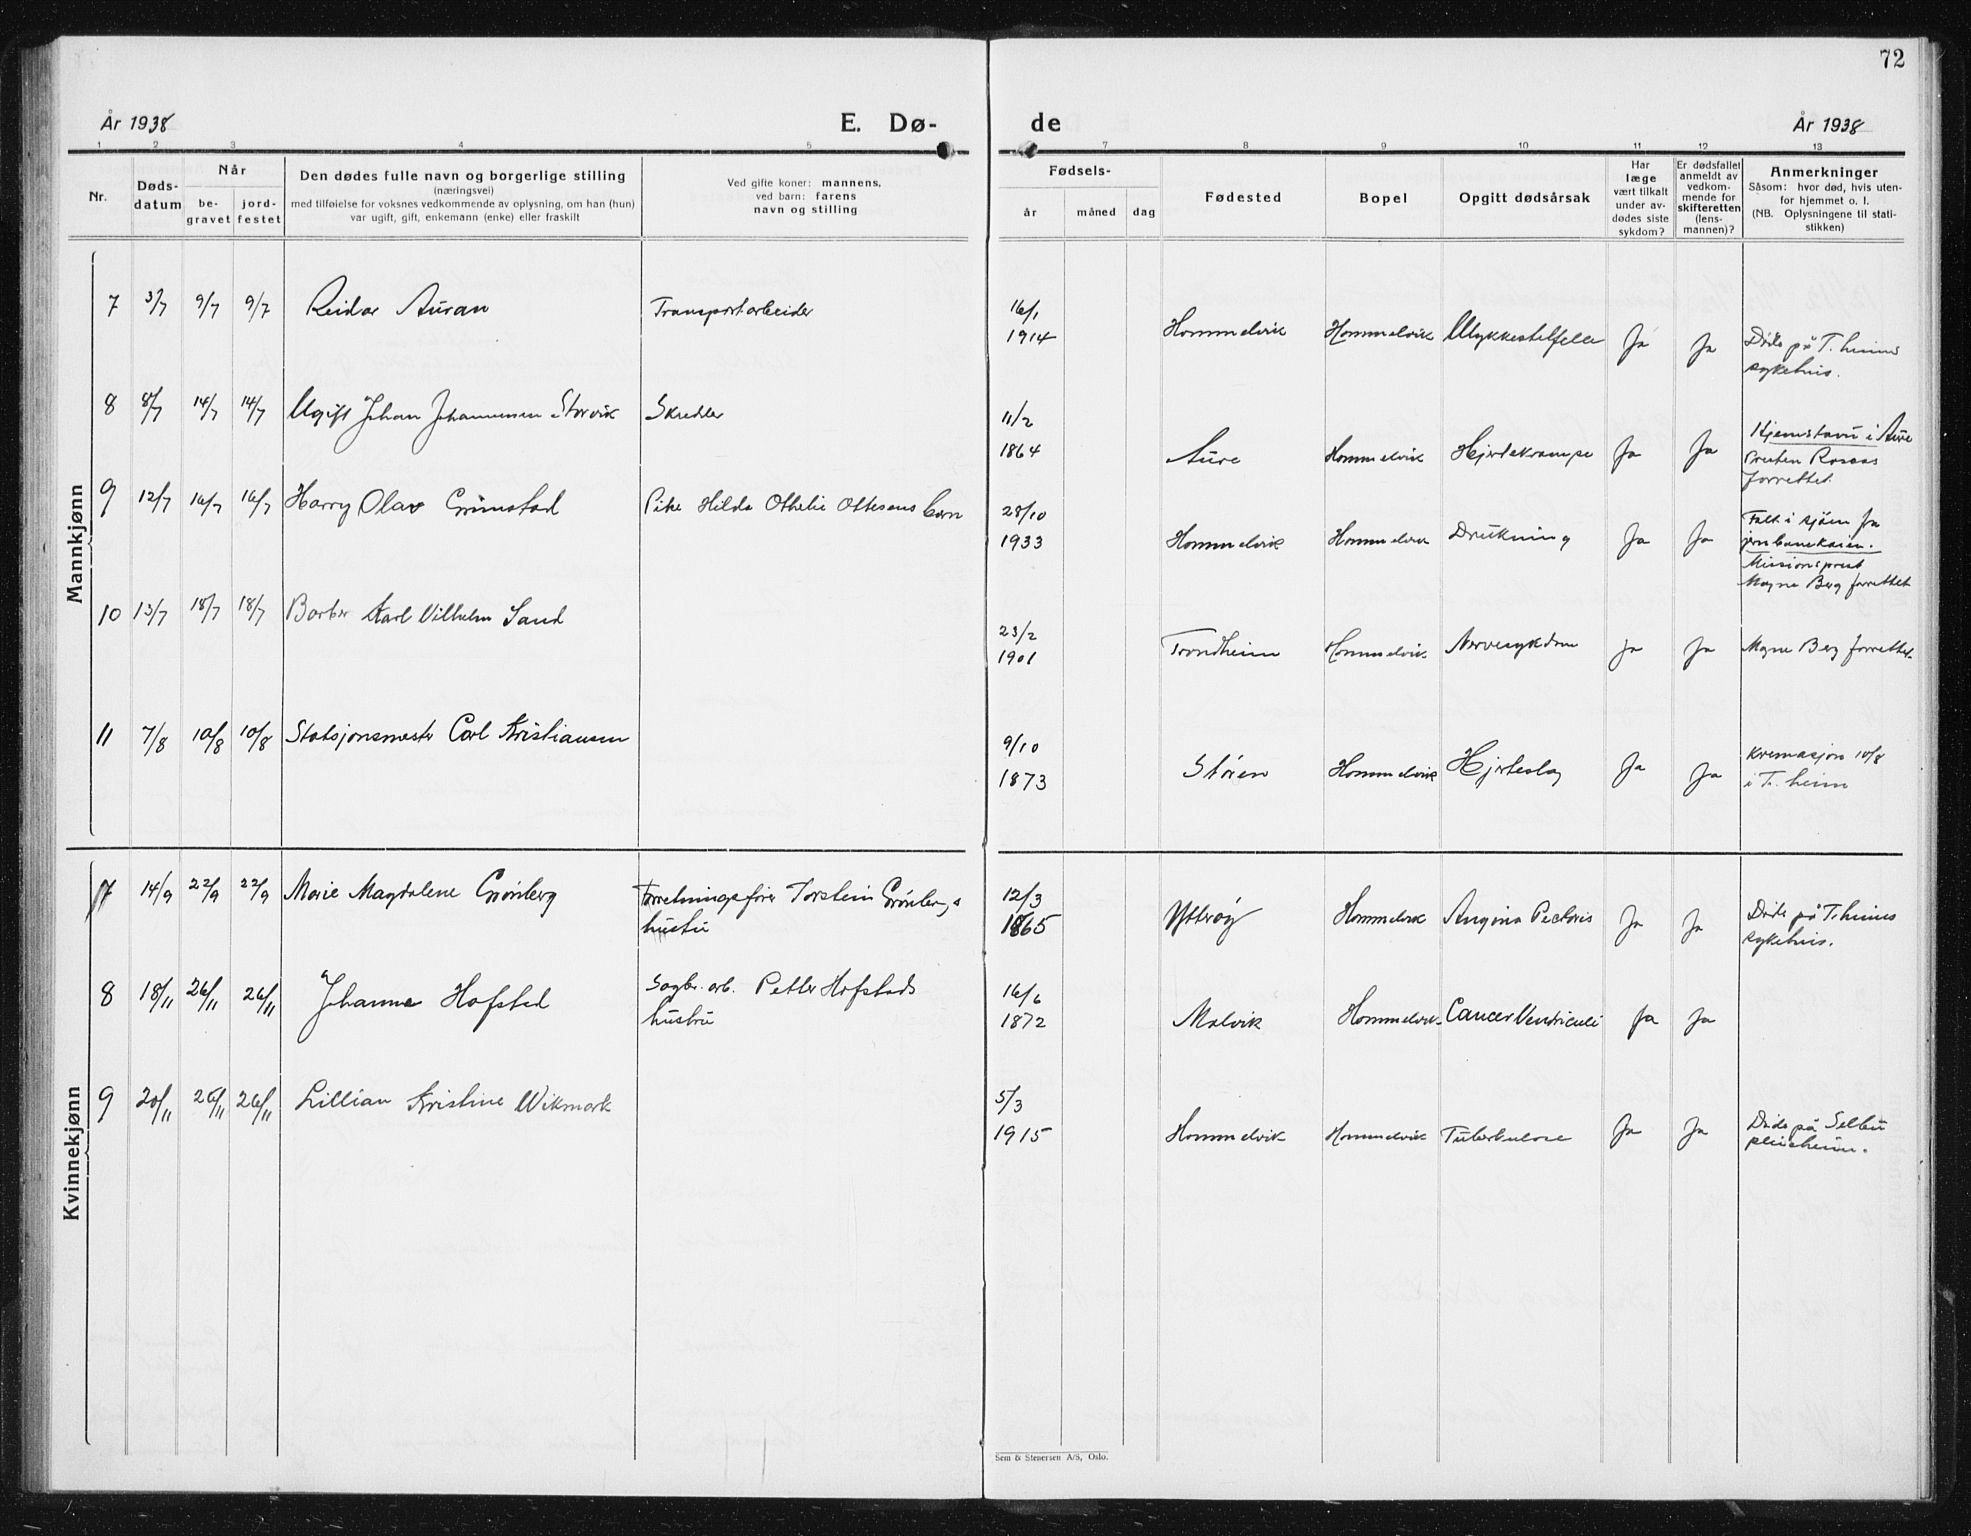 72
År 1938 E. Dø- de År 1938
1 2 3 4 5 7 8 9 10 11 12 13
Nr.
Døds-
datum
Når
be-
gravet
jord-
festet
Den dødes fulle navn og borgerlige stilling
(næringsvei)
med tilføielse for voksnes vedkommende av oplysning, om han (hun)
var ugift, gift, enkemann (enke) eller fraskilt
Ved gifte koner: mannens,
ved barn: farens
navn og stilling
Fødsels-
år måned dag
Fødested
Bopel
Opgitt dødsårsak
Har
læge
vært tilkalt
under av-
dødes siste
sykdom?
Er dødsfallet
anmeldt av
vedkom-
mende for
skifteretten
(lens-
mannen)?
Anmerkninger
Såsom: hvor død, hvis uten-
for hjemmet o. l.
(NB. Oplysningene til stati-
stikken)
Mannkjønn
7 3/7 9/7 9/7 Reidar Auran Transportarbeider 16/1
1914 Hommelvik Hommelvik Ulykkestilfelle Ja Ja Døde på T.heims
sykehus.
8 8/7 14/7 14/7 Ugift Johan Johannessen Storvik Skredder 11/2
1864 Aure Hommelvik Hjertekrampe Ja Ja Hjemstavn i Aure
Presten
forrettet.
9 12/7 16/7 16/7 Harry Olav Grimstad Pike Hilda Othelie Ottesens barn 28/10
1933 Hommelvik Hommelvik Drukning Ja Ja Falt i sjøen fra
jernbanekaien.
Misjonsprest
Magne Berg forrettet
10 13/7 18/7 18/7 Barber Karl Vilhelm Sand 23/2
1901 Trondheim Hommelvik Nervesykdom Ja Ja Magne Berg forrettet
11 7/8 10/8 10/8 Stasjonsmester Carl Kristiansen 9/10
1873 Støren Hommelvik Hjerteslag Ja Ja Kremasjon 10/8
i T.heim
Kvinnekjønn
7 14/9 22/9 22/9 Marie Magdalene Grønberg Forretningsfører Torstein Grønbergs
hustru 12/3
1865 Ytterøy Hommelvik Angina Pectoris Ja Ja Døde på T.heims
sykehus.
8 18/11 26/11 26/11 Johanna Hofstad Sagbr. arb. Petter Hofstads
hustru 16/6
1872 Malvik Hommelvik Cancer Ventriculi Ja Ja
9 20/11 26/11 26/11 Lillian Kristine Wikmark 5/3
1915 Hommelvik Hommelvik Tuberkulose Ja Ja Døde på Selbu
pleieheim.
Sem & Stenersen A/S, Oslo.